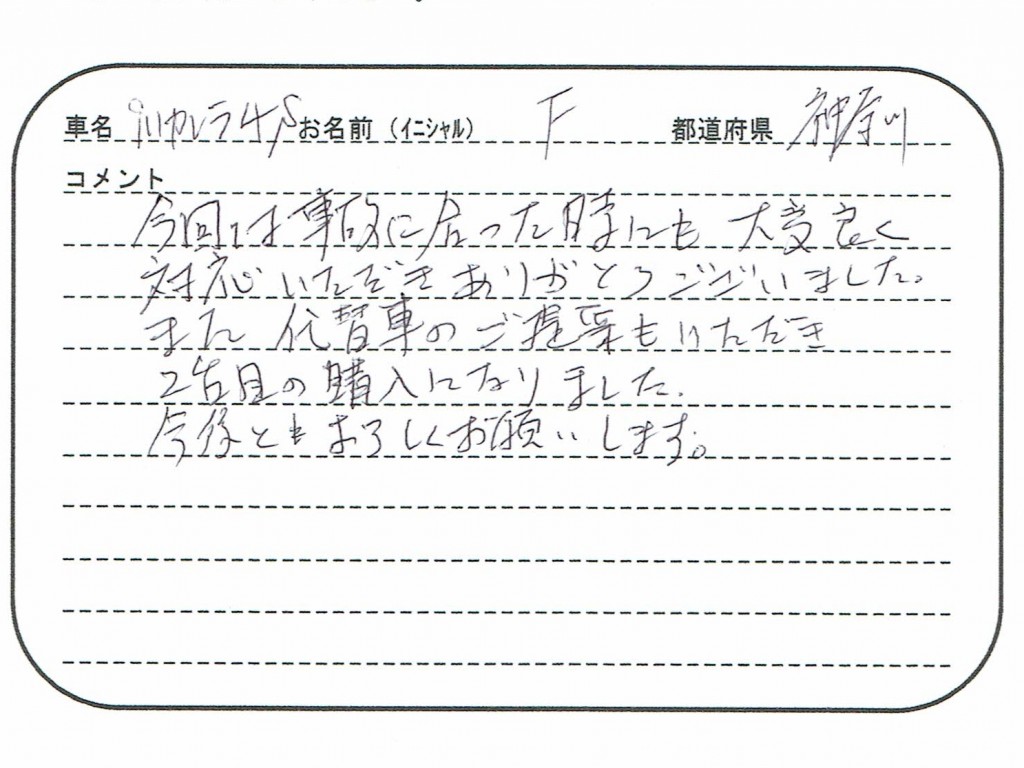 車名 911カレラ4S お名前（ｲﾆｼｬﾙ） F 都道府県 神奈川
コメント
今回は事故に合った時にも 大変良く
対応いただきありがとうございました。
また代替車のご提案もいただき
2台目の購入になりました.
今後ともよろしくお願いします。